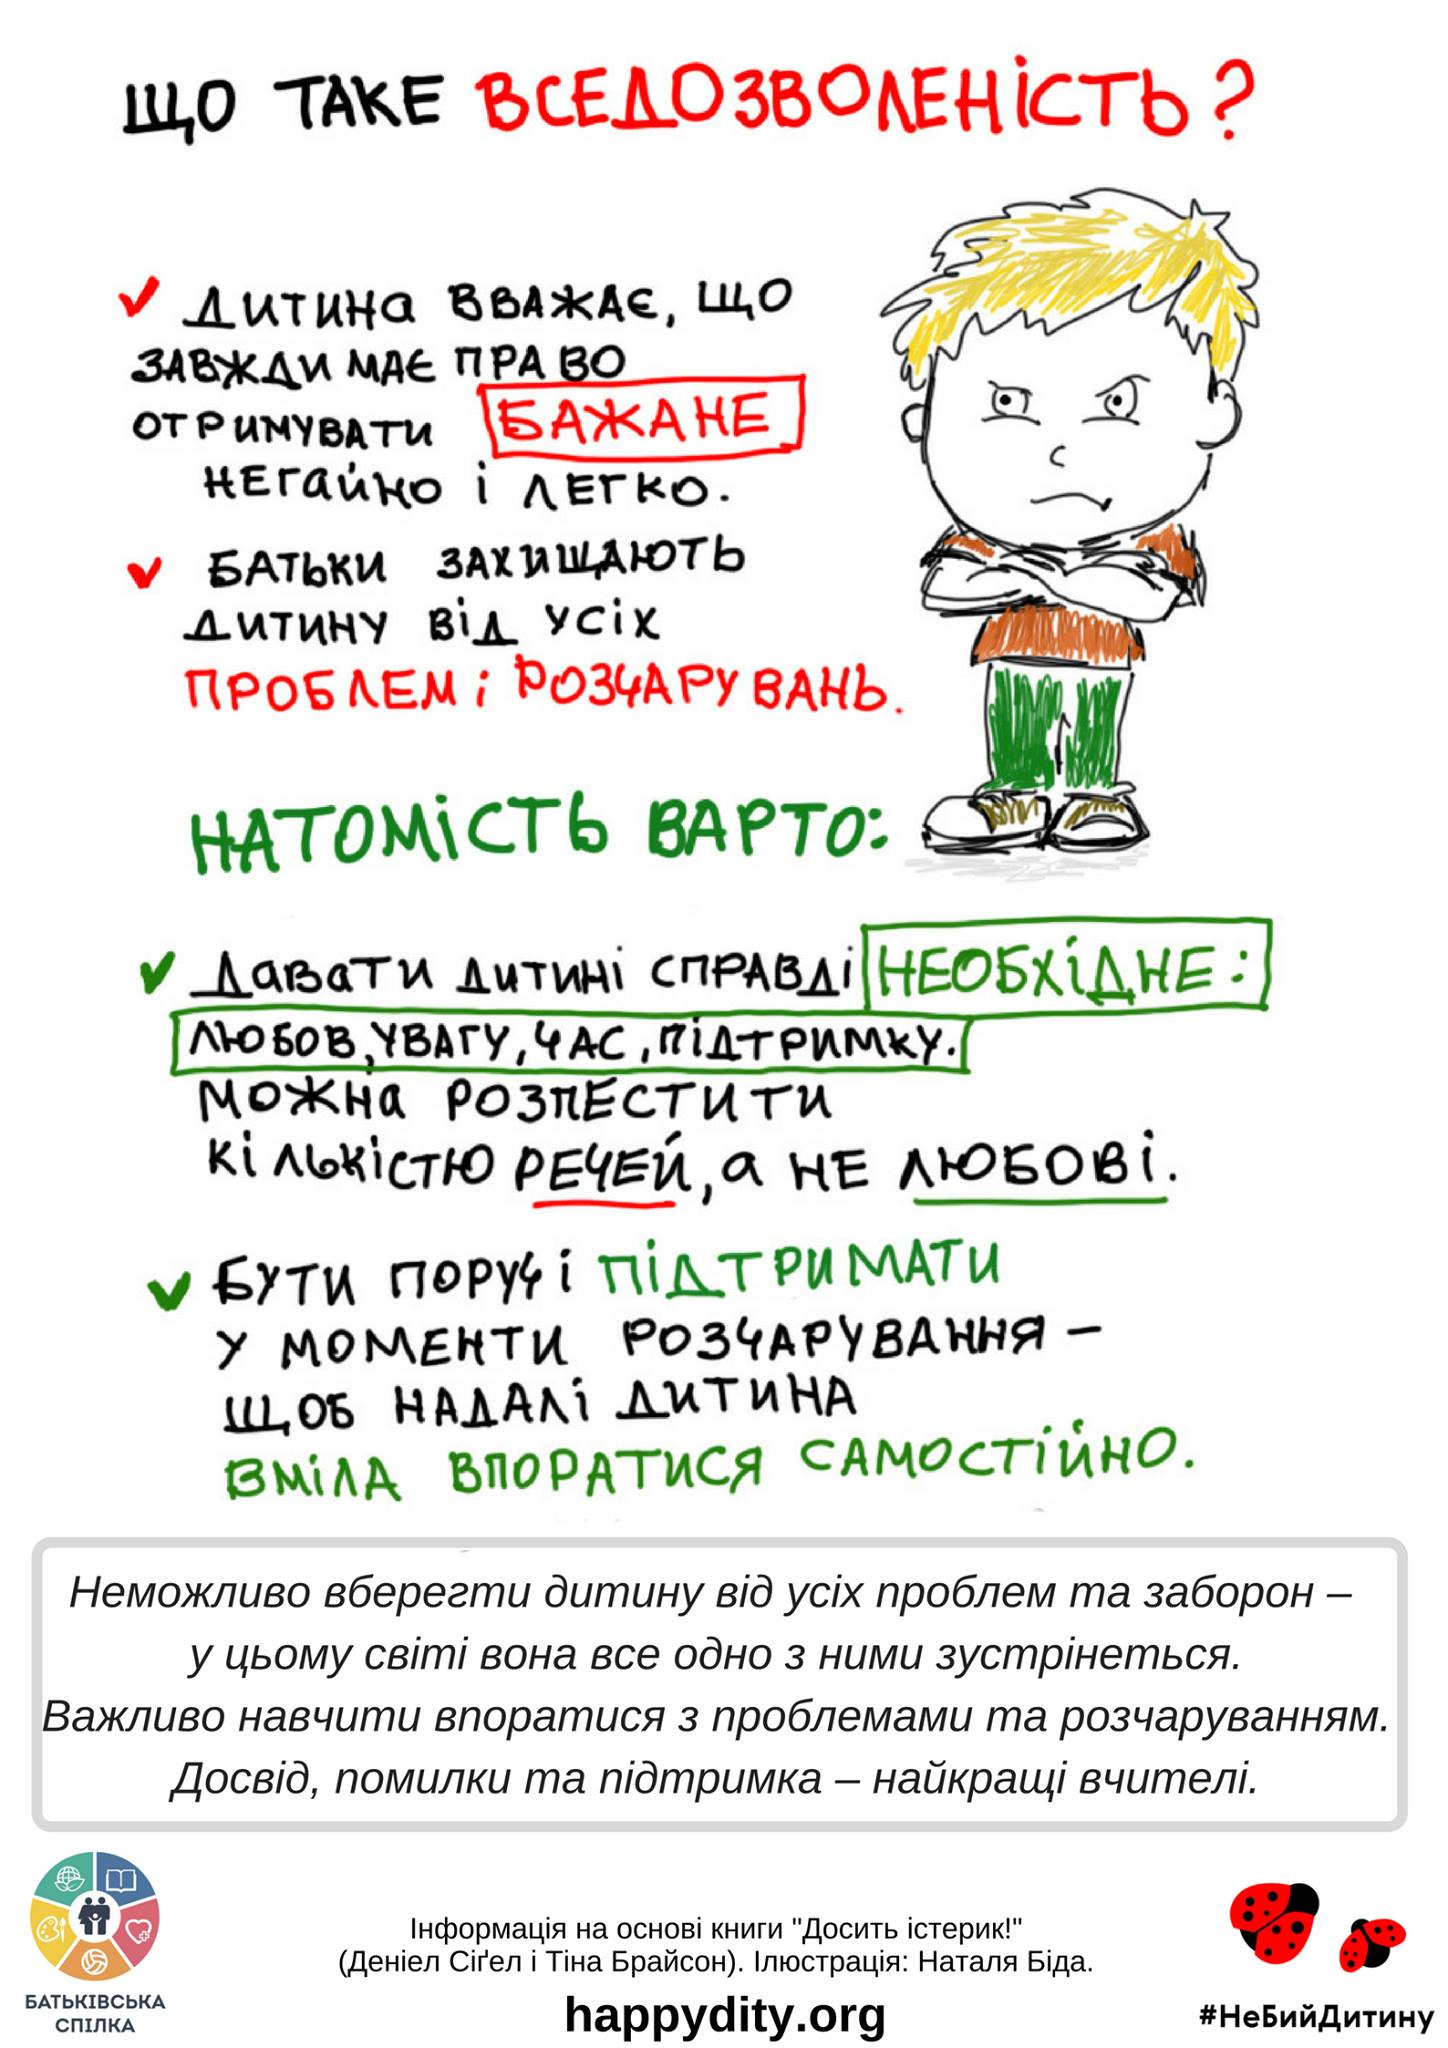 ЩО ТАКЕ ВСЕДОЗВОЛЕНІСТЬ?
ДИТИНА ВВАЖАЄ, ЩО
ЗАВЖДИ МАЄ ПРАВО
ОТРИМУВАТИ БАЖАНЕ
НЕГАЙНО І ЛЕГКО.
БАТЬКИ ЗАХИЩАЮТЬ
ДИТИНУ ВІД УСІХ
ПРОБЛЕМ І РОЗЧАРУВАНЬ.
НАТОМІСТЬ ВАРТО:
ДАВАТИ ДИТИНІ СПРАВДІ НЕОБХІДНЕ:
ЛЮБОВ, УВАГУ, ЧАС, ПІДТРИМКУ.
МОЖНА РОЗПЕСТИТИ
КІЛЬКІСТЮ РЕЧЕЙ, А НЕ ЛЮБОВІ.
БУТИ ПОРУЧ І ПІДТРИМАТИ
У МОМЕНТИ РОЗЧАРУВАННЯ –
ЩОБ НАДАЛІ ДИТИНА
ВМІЛА ВПОРАТИСЯ САМОСТІЙНО.
Неможливо вберегти дитину від усіх проблем та заборон –
у цьому світі вона все одно з ними зустрінеться.
Важливо навчити впоратися з проблемами та розчаруванням.
Досвід, помилки та підтримка – найкращі вчителі.
БАТЬКІВСЬКА
СПІЛКА
Інформація на основі книги "Досить істерик!"
(Деніел Сіґел і Тіна Брайсон). Ілюстрація: Наталя Біда.
happydity.org
#НеБийДитину